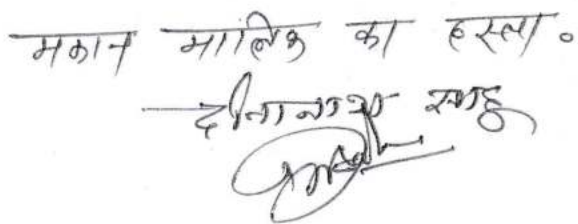 मकान मालिक का हस्ता०
दीनानाथ साहू